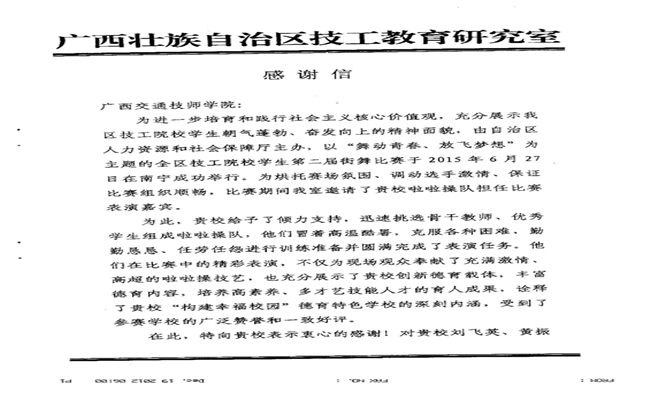 广西壮族自治区技工教育研究室
感谢信
广西交通技师学院：
为进一步培育和践行社会主义核心价值观，充分展示我
区技工院校学生朝气蓬勃、奋发向上的精神面貌，由自治区
人力资源和社会保障厅主办，以“舞动青春、放飞梦想”为
主题的全区技工院校学生第二届街舞比赛于 2015 年 6 月 27
日在南宁成功举行。为烘托赛场氛围、调动选手激情、保证
比赛组织顺畅，比赛期间我室邀请了贵校啦啦操队担任比赛
表演嘉宾。
为此，贵校给予了倾力支持，迅速挑选骨干教师、优秀
学生组成啦啦操队，他们冒着高温酷暑，克服各种困难，勤
勤恳恳、任劳任怨进行训练准备并圆满完成了表演任务。他
们在比赛中的精彩表演，不仅为现场观众奉献了充满激情、
高超的啦啦操技艺，也充分展示了贵校创新德育载体，丰富
德育内容，培养高素养、多才艺技能人才的育人成果，诠释
了贵校“构建幸福校园”德育特色学校的深刻内涵，受到了
参赛学校的广泛赞誉和一致好评。
在此，特向贵校表示衷心的感谢！对贵校刘飞英、黄振
FROM : FAX NO. : Dec. 19 2012 06:00 P1